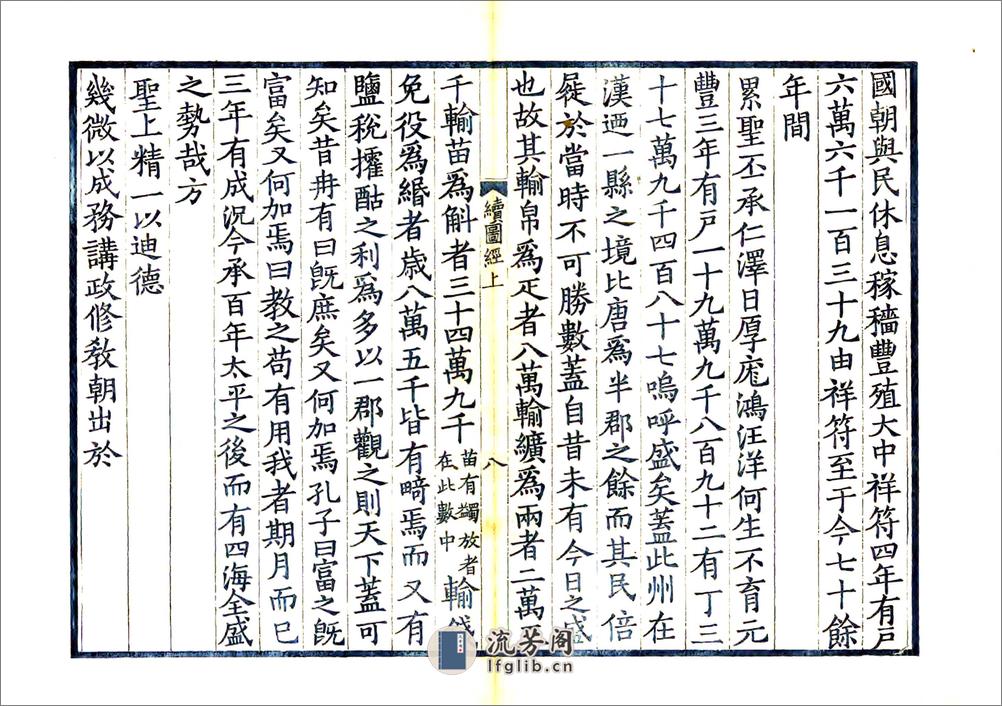 國朝與民休息稼穡豐殖大中祥符四年有戸
六萬六千一百三十九由祥符至于今七十餘
年間
累聖丕承仁澤日厚厖鴻汪洋何生不育元
豐三年有戸一十九萬九千八百九十二有丁三
十七萬九千四百八十七嗚呼盛矣蓋此州在
漢迺一縣之境比唐爲半郡之餘而其民倍
蓰於當時不可勝數蓋自昔未有今日之盛
也故其輸帛爲疋者八萬輸纊爲兩者二萬
續圖經上
八
千輸苗爲斛者三十四萬九千苗有蠲放者在此數中輸
免役爲緡者歳八萬五千皆有畸焉而又有
鹽稅㩁酤之利爲多以一郡觀之則天下蓋可
知矣昔冉有曰旣庶矣又何加焉孔子曰富之旣
富矣又何加焉曰教之苟有用我者期月而已
三年有成況今承百年太平之後而有四海全盛
之勢哉方
聖上精一以迪德
幾微以成務講政修敎朝出於
流芳阁
lfglib.cn